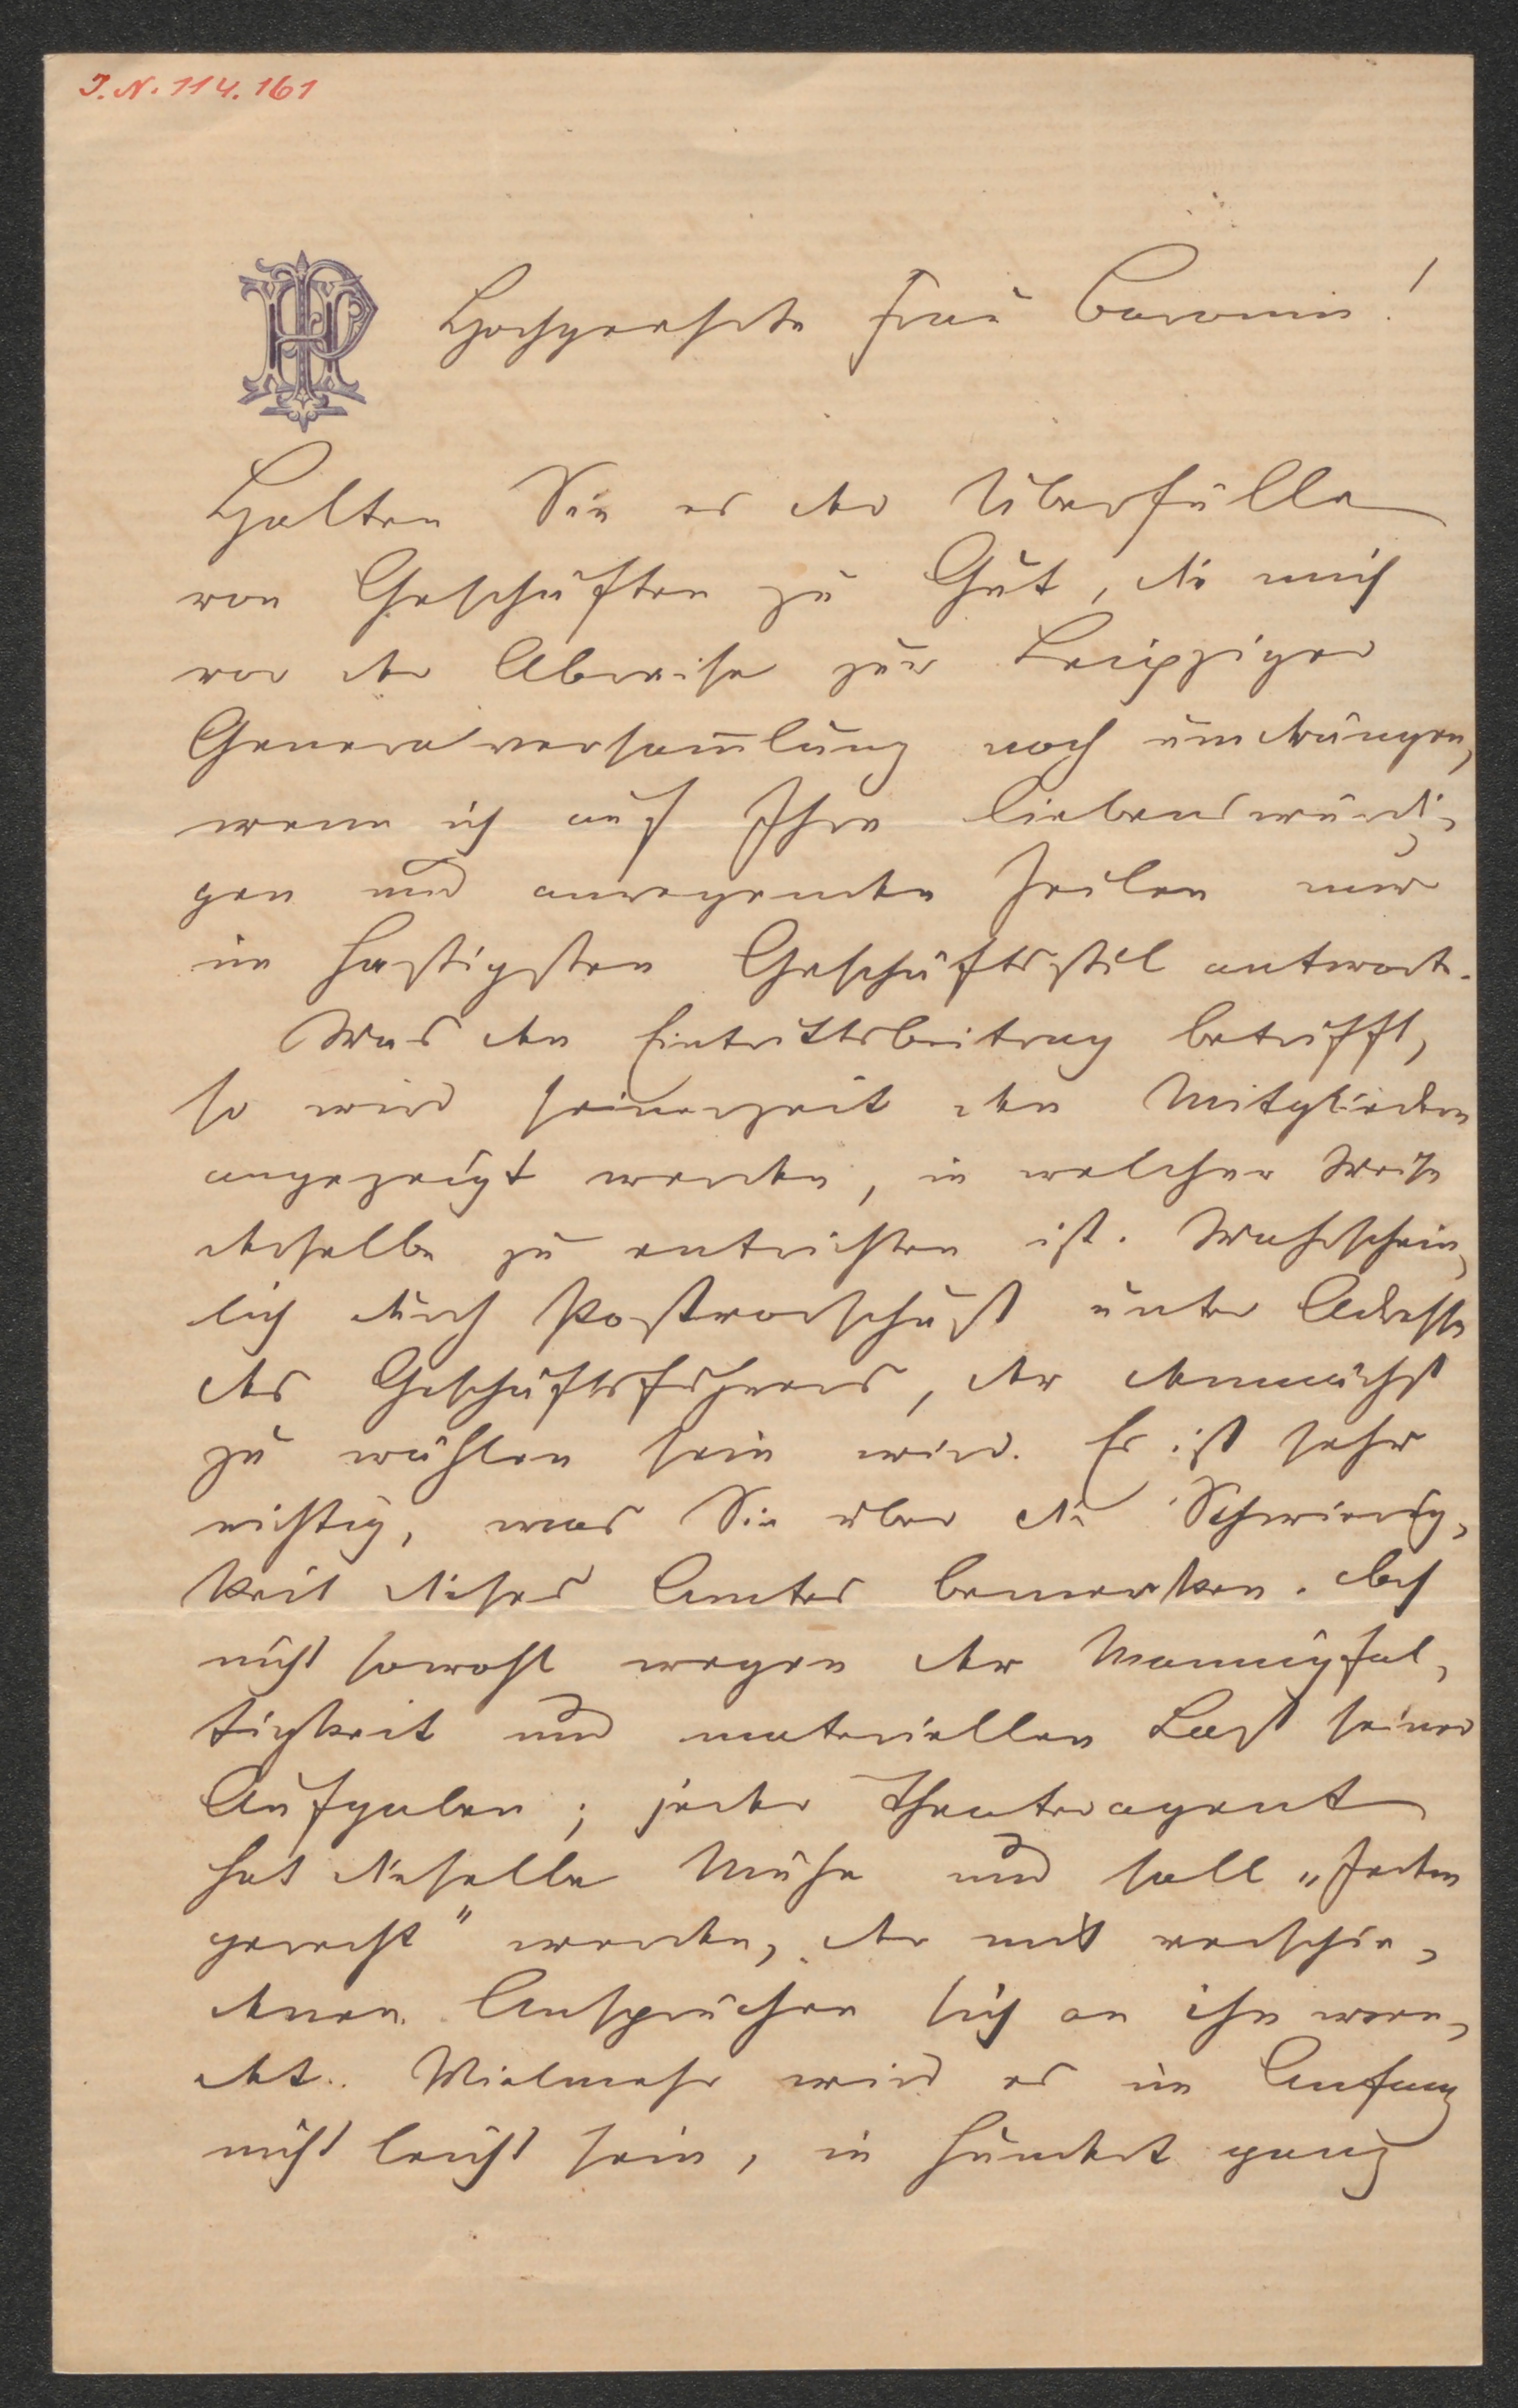 I. N. 114.161
HP
Hochgeehrte Frau Baronin!
Halten Sie es der Überfülle
von Geschäften zu Gut, die mich
vor der Abreise zur Leipziger
Generalversammlung noch umdrängen,
wenn ich auf Ihre liebenswürdi-
gen und anregenden Zeilen nur
im hastigsten Geschäftsstil antworte.
Was den Eintrittsbeitrag betrifft,
so wird seinerzeit den Mitgliedern
angezeigt werden, in welcher Weise
derselbe zu entrichten ist. Wahrschein-
lich durch Postvorschuß unter Adresse
des Geschäftsführers, der demnächst
zu wählen sein wird. Es ist sehr
richtig, was Sie über die Schwierig-
keit dieses Amtes bemerken. Doch
nicht sowohl wegen der Mannigfal-
tigkeit und materiellen Last seiner
Aufgaben; jeder Theateragent
hat dieselbe Mühe und soll „Jedem
gerecht" werden, der mit verschie-
denen Ansprüchen sich an ihn wen-
det. Vielmehr wird es im Anfang
nicht leicht sein, in hundert ganz